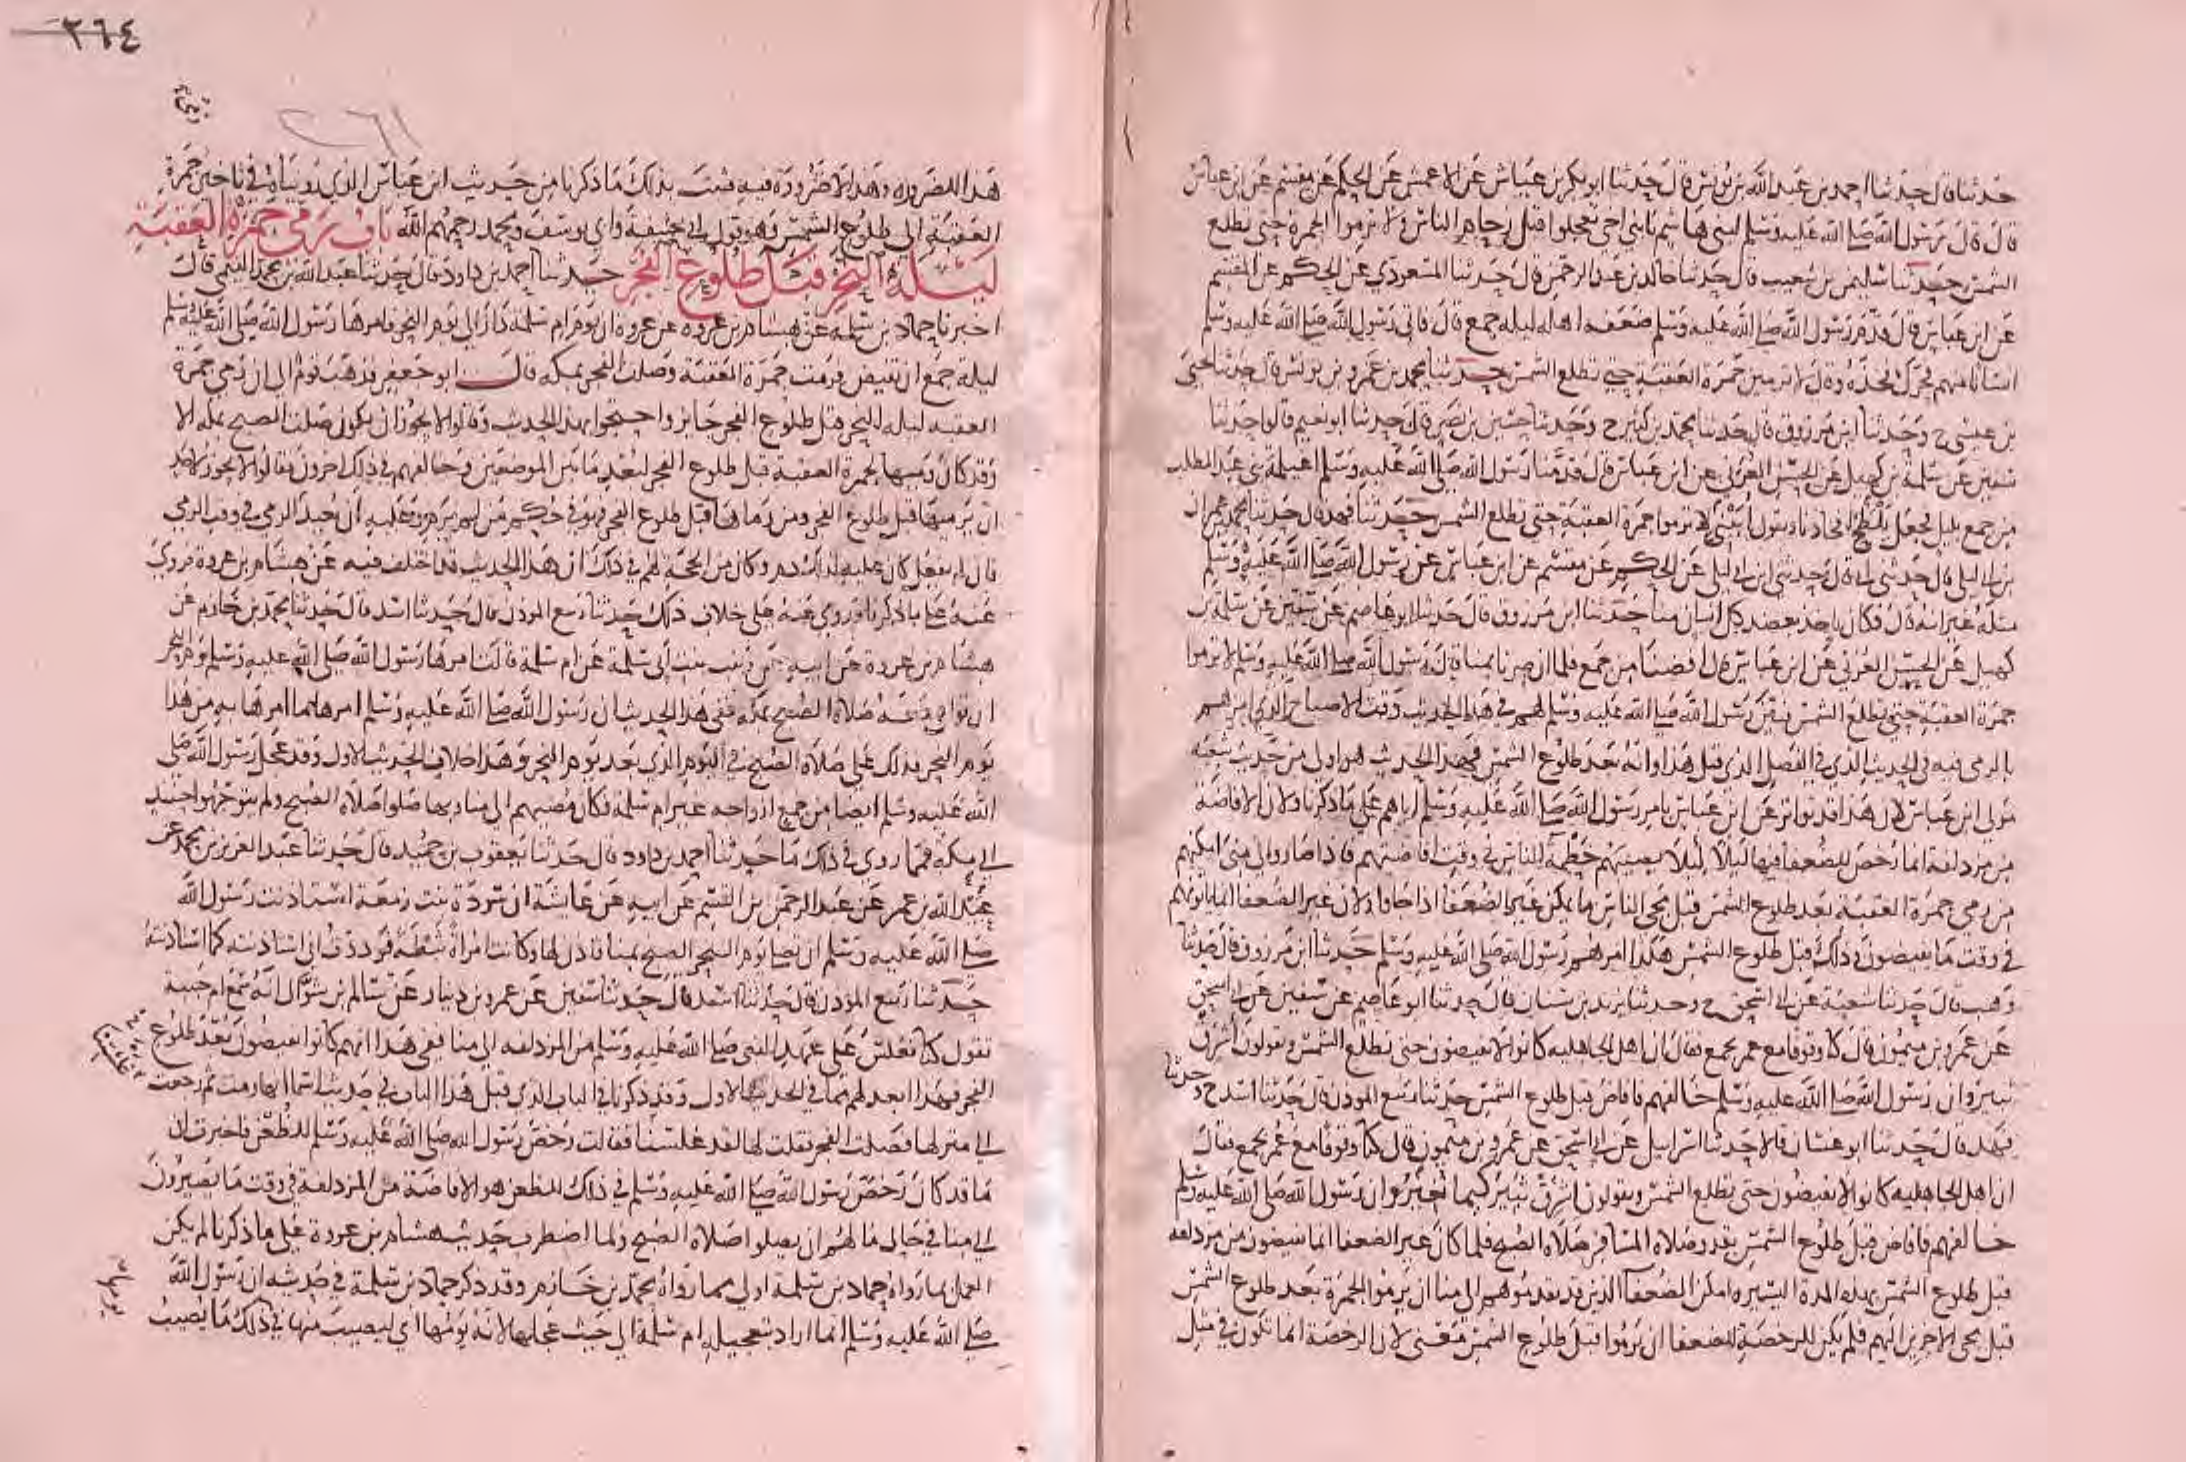 حدثنا قال حدثنا احمد بن عبد الله بن يونس قال حدثنا ابو بكر بن عياش عن الاعمش عن الحكم عن مقسم عن ابن عباس
قال قال رسول الله صلى الله عليه وسلم لبني هاشم يا بني اخي تعجلوا قبل زحام الناس ولا ترموا الجمرة حتى تطلع
الشمس حدثنا سليمن بن شعيب قال حدثنا خالد بن عبد الرحمن قال حدثنا المسعودي عن الحكم عن المقسم
عن ابن عباس قال قدم رسول الله صلى الله عليه وسلم ضعفه اهله ليله جمع قال فاتى رسول الله صلى الله عليه وسلم
انسانا منهم فحرك فخذه وقال لا ترمين جمرة العقبة حتى تطلع الشمس حدثنا محمد بن عمرو بن يونس قال حدثنا يحيى
بن عيسى ح وحدثنا ابن مرزوق قال حدثنا محمد بن كثير ح وحدثنا حسين بن نصر قال حدثنا ابو نعيم قالوا حدثنا
سفين عن سلمة بن كهيل عن الحسن العرني عن ابن عباس قال قدمنا رسول الله صلى الله عليه وسلم اغيلمة بني عبد المطلب
من جمع بليل فجعل يلطح افخاذنا ويقول ابيني لا ترموا جمرة العقبة حتى تطلع الشمس حدثنا فهد قال حدثنا محمد بن عمران
بن ابي ليلى قال حدثني ابي قال حدثني ابن ابي ليلى عن الحكم عن مقسم عن ابن عباس عن رسول الله صلى الله عليه وسلم
مثله غير انه قال فكان ياخذ بعضد كل انسان منا حدثنا ابن مرزوق قال حدثنا ابو عاصم عن سفين عن سلمة بن
كهيل عن الحسن العرني عن ابن عباس قال افضنا من جمع فلما ان صرنا بمنا قال رسول الله صلى الله عليه وسلم لا ترموا
جمرة العقبة حتى تطلع الشمس فبين رسول الله صلى الله عليه وسلم لهم في هذا الحديث وقت الاصباح الذي امرهم
بالرمي فيه في الحديث الذي في الفصل الذي قبل هذا وانه بعد طلوع الشمس فهذا الحديث هو اولى من حديث شعبة
مولى ابن عباس لان هذا قد تواتر عن ابن عباس بامر رسول الله صلى الله عليه وسلم اياهم على ما ذكرنا ولان الافاضة
من مزدلفة انما رخص للضعفا فيها ليلا لئلا يصيبهم حطمة الناس في وقت افاضتهم فاذا صاروا الى منى امكنهم
من رمى جمرة العقبة بعد طلوع الشمس قبل مجى الناس ما يمكن غير الضعفا اذا جاوا ولان غير الضعفا انما ياتوهم
في وقت ما يفيضون وذلك قبل طلوع الشمس هكذا امرهم رسول الله صلى الله عليه وسلم حدثنا ابن مرزوق قال حدثنا
وهب قال حدثنا شعبة عن ابي اسحق ح وحدثنا يزيد بن سنان قال حدثنا ابو عاصم عن سفين عن ابي اسحق
عن عمرو بن ميمون قال كنا وقوفا مع عمر بجمع فقال ان اهل الجاهليه كانوا لا يفيضون حتى تطلع الشمس ويقولون اشرق
ثبير وان رسول الله صلى الله عليه وسلم خالفهم فافاض قبل طلوع الشمس حدثنا ربيع المؤذن قال حدثنا اسد ح وحدثنا
فهد قال حدثنا ابو غسان قالا حدثنا اسرائيل عن ابي اسحق عن عمرو بن ميمون قال كنا وقوفا مع عمر بجمع فقال
ان اهل الجاهليه كانوا لا يفيضون حتى تطلع الشمس ويقولون اشرق ثبير كيما نغير وان رسول الله صلى الله عليه وسلم
خالفهم فافاض قبل طلوع الشمس بقدر صلاه المسافر صلاه الصبح فلما كان غير الضعفا انما يفيضون من مزدلفه
قبل طلوع الشمس بهذه المدة اليسيره امكن الضعفا الذين قد تقدموهم الى منا ان يرموا الجمرة بعد طلوع الشمس
قبل مجى الاخرين اليهم فلم يكن للرخصة للضعفا ان يرموا قبل طلوع الشمس معنى لان الرخصة انما تكون في مثل
٢٦٤
٢٦١
هذا للضروره وهذا لا ضرورة فيه فثبت بذلك ما ذكرنا من حديث ابن عباس الذي رويناه في تاخير جمرة
العقبة الى طلوع الشمس وهو قول ابي حنيفة وابي يوسف ومحمد رحمهم الله باب رمي جمرة العقبة
ليلة النحر قبل طلوع الفجر حدثنا احمد بن داود قال حدثنا عبد الله بن محمد التيمي قال
اخبرنا حماد بن سلمه عن هشام بن عروه عن عروه ان يوم ام سلمه دار الى يوم النحر فامرها رسول الله صلى الله عليه وسلم
ليلة جمع ان تفيض فرمت جمرة العقبة وصلت الفجر بمكه قال ابو جعفر فذهب قوم الى ان رمي جمرة
العقبه ليله النحر قبل طلوع الفجر جايز واحتجوا بهذا الحديث وقالوا لا يجوز ان يكون صلت الصبح بمكه الا
وقد كان رميها لجمرة العقبة قبل طلوع الفجر لبعد ما بين الموضعين وخالفهم في ذلك اخرون فقالوا لا يجوز لاحد
ان يرميها قبل طلوع الفجر ومن رماها قبل طلوع الفجر فهو في حكم من لم يرم وعليه ان يعيد الرمي في وقت الرمي
فان لم يفعل كان عليه لذلك دم وكان من الحجة لهم في ذلك ان هذا الحديث قد اختلف فيه عن هشام بن عروة فروي
عنه على ما ذكرنا وروي عنه على خلاف ذلك حدثنا ربيع المؤذن قال حدثنا اسد قال حدثنا محمد بن خازم عن
هشام بن عروة عن ابيه عن زينب بنت ابي سلمة عن ام سلمة قالت امرها رسول الله صلى الله عليه وسلم يوم النحر
ان توافي معه صلاة الصبح بمكه ففي هذا الحديث ان رسول الله صلى الله عليه وسلم امرها بما امرها به من هذا
يوم النحر فذلك على صلاة الصبح في اليوم الذي بعد يوم النحر وهذا خلاف الحديث الاول وقد عجل رسول الله صلى
الله عليه وسلم ايضا من جمع ازواجه غير ام سلمه فكان مضيهم الى منا وبها صلوا صلاة الصبح ولم يتوجهوا حينئذ
الى مكة فمما روي في ذلك ما حدثنا احمد بن داود قال حدثنا يعقوب بن حميد قال حدثنا عبد العزيز بن محمد عن
عبيد الله بن عمر عن عبد الرحمن بن القسم عن ابيه عن عايشة ان سودة بنت زمعة استاذنت رسول الله
صلى الله عليه وسلم ان تصلي يوم النحر الصبح بمنا فاذن لها وكانت امراة ثبطة فوددت اني استاذنته كما استاذنته
حدثنا ربيع المؤذن قال حدثنا اسد قال حدثنا سفين عن عمرو بن دينار عن سالم بن شوال انه سمع ام حبيبة
تقول كنا نغلس على عهد النبي صلى الله عليه وسلم من المزدلفه الى منا ففي هذا انهم كانوا يفيضون بعد طلوع
الفجر فهذا ابعد لهم مما في الحديث الاول وقد ذكرنا في الباب الذي قبل هذا الباب في حديث اسما انها رمت ثم رجعت
الى منزلها فصلت الفجر فقلت لها لقد غلستنا فقالت رخص رسول الله صلى الله عليه وسلم للظعن فاخبرت ان
ما قد كان رخص رسول الله صلى الله عليه وسلم في ذلك للظعن هو الافاضة من المزدلفة في وقت ما يصيرون
الى منا في حال ما لهم ان يصلوا صلاة الصبح ولما اضطرب حديث هشام بن عروة على ما ذكرنا لم يكن
العمل بما رواه حماد بن سلمة اولى مما رواه محمد بن خازم وقد ذكر حماد بن سلمة في حديثه ان رسول الله
صلى الله عليه وسلم انما اراد بتعجيله ام سلمة الى حيث عجلها لانه يومها اي ليصيب منها في ذلك ما يصيب